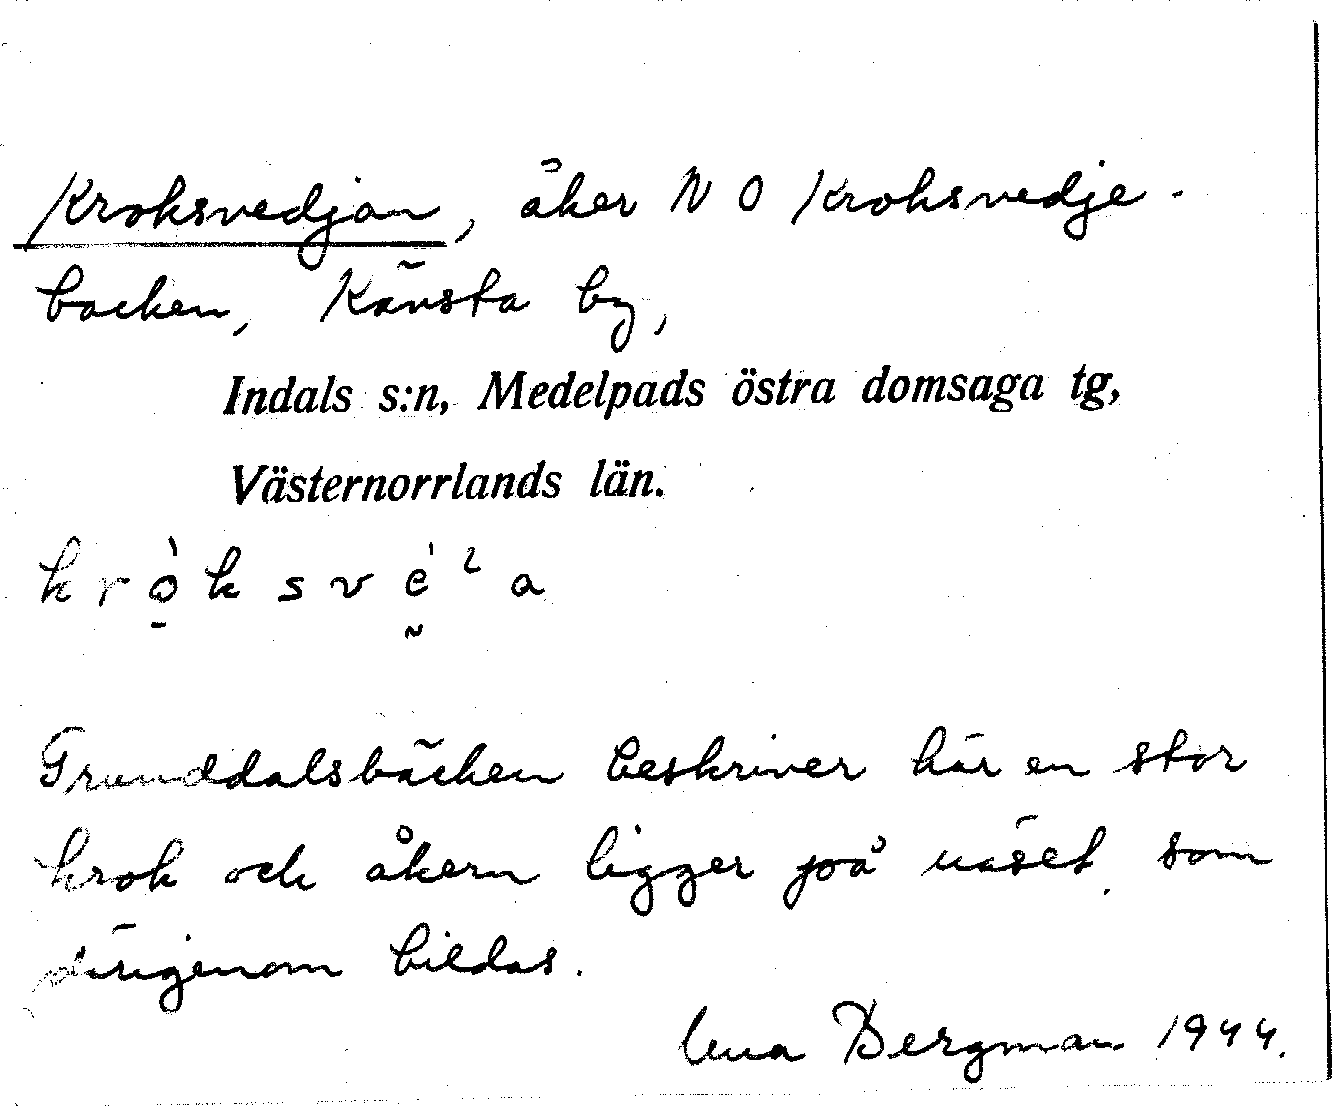 Kroksvedjan, åker N O Kroksvedje-
backen, Kävsta by,
Indals s:n, Medelpads östra domsaga tg,
Västernorrlands län.
Grunddalsbäcken beskriver här en stor
krok och åkern ligger på näset som
därigenom bildas.
Bergman 1944.